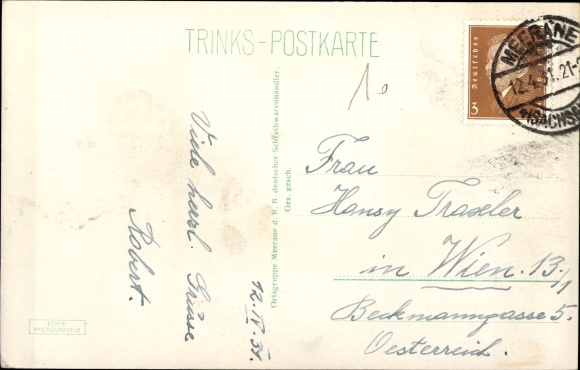 TRINKS-POSTKARTE
10
MEERANE
12.4.31. 21-
(SACHSA
Deutsches
3
Ortsgruppe Meerane d. R. B. deutscher Schreibwarenhändler.
Ges. gesch.
Viele herzl. Grüsse
Robert.
12. IV. 31.
Frau
Hansy Traxler
in Wien. 13./1
Beckmanngasse 5.
Oesterreich.
ECHTE
PHOTOGRAPHIE